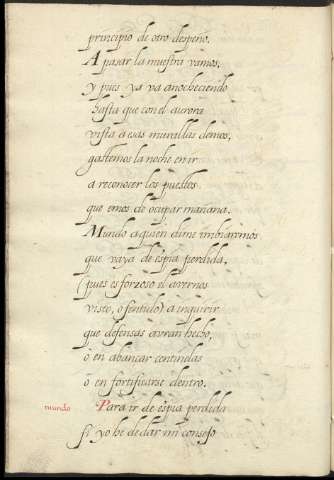 principio de otro despeño.
A pasar la muestra vamos,
y pues ya va anocheciendo
hasta que con el aurora
vista a esas murallas demos,
gastemos la noche en ir
a reconocer los puestos
que emos de ocupar mañana.
Mundo a quien dime imbiaremos
que vaya de espia perdida,
(pues es forzoso el avernos
visto, o sentido) a inquirir
que defensas avran hecho,
o en abanzar centinelas
o en fortificarse dentro.
mundo Para ir de espia perdida
si yo he de dar mi consejo